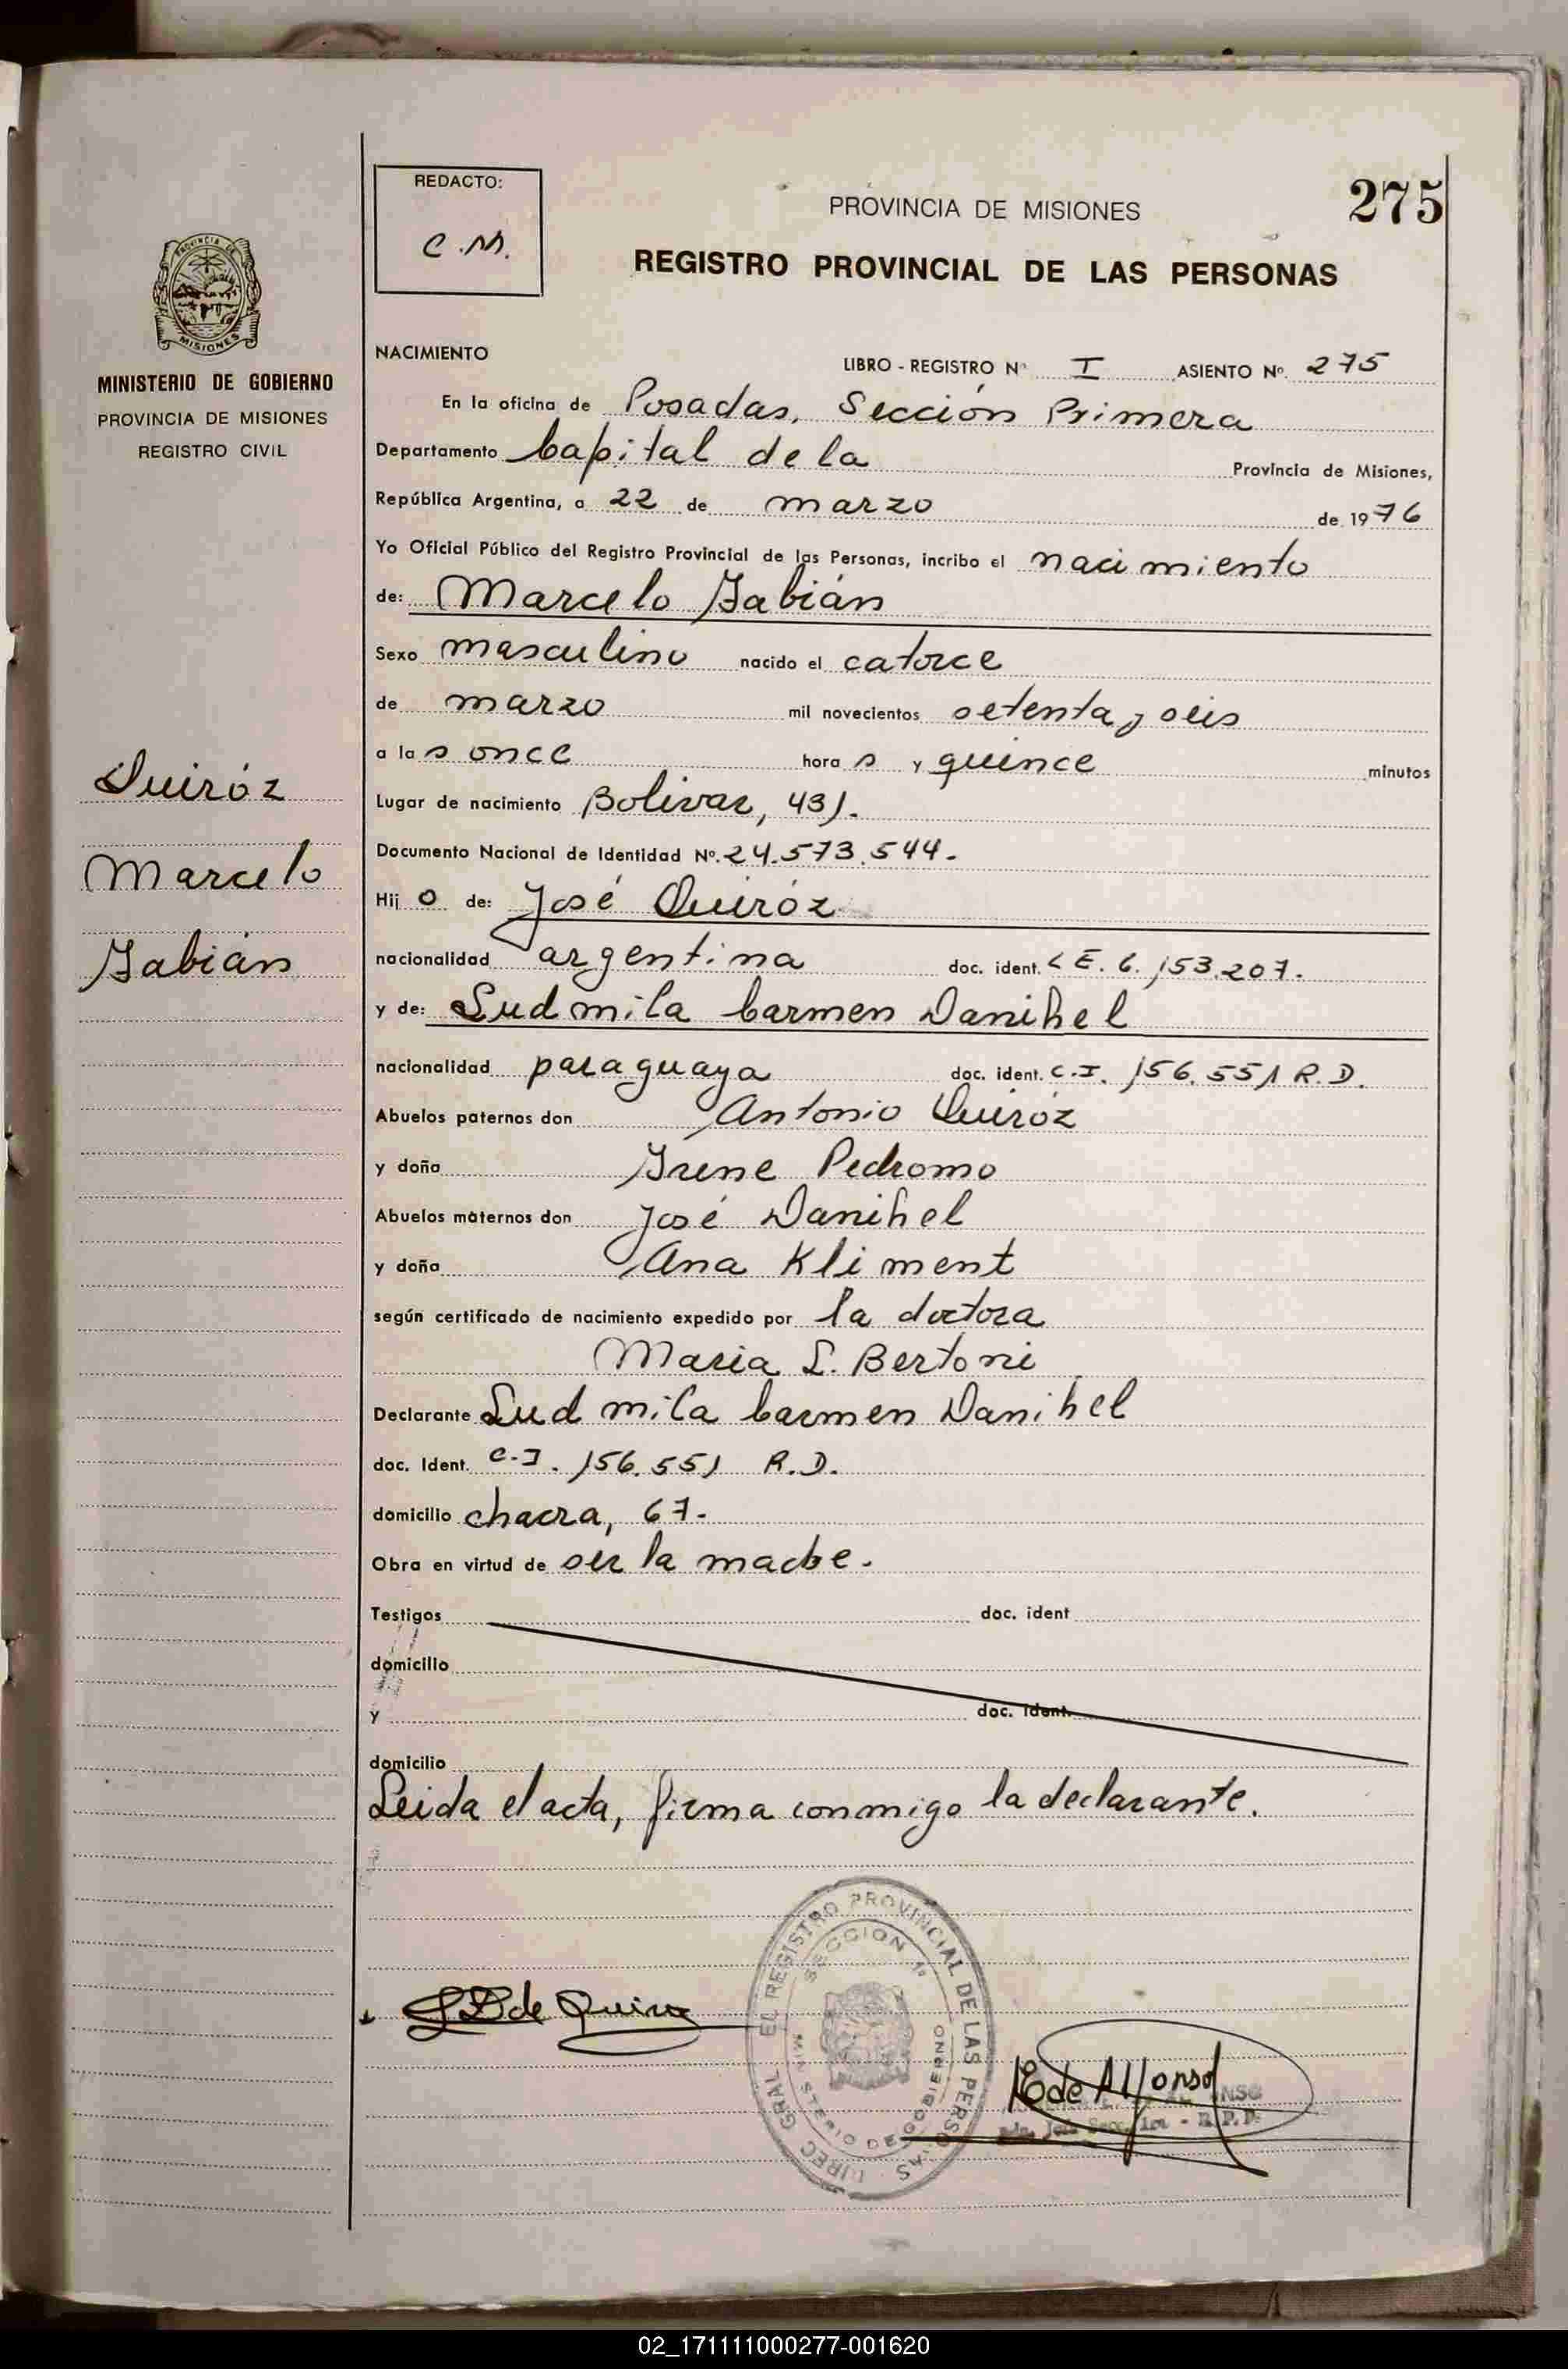 275
REDACTO:
C.M.
PROVINCIA DE MISIONES
REGISTRO PROVINCIAL DE LAS PERSONAS
PROVINCIA DE
MISIONES
MINISTERIO DE GOBIERNO
PROVINCIA DE MISIONES
REGISTRO CIVIL
Quiróz
Marcelo
Fabián
NACIMIENTO
LIBRO - REGISTRO Nº I ASIENTO Nº. 275
En la oficina de Posadas, Sección Primera
Departamento Capital de la Provincia de Misiones,
República Argentina, a 22 de marzo de 1976
Yo Oficial Público del Registro Provincial de las Personas, incribo el nacimiento
de: Marcelo Fabián
Sexo masculino nacido el catorce
de marzo mil novecientos setenta y seis
a las once horas y quince minutos
Lugar de nacimiento Bolivar, 431.
Documento Nacional de Identidad Nº. 24.573.544.
Hijo de: José Quiróz
nacionalidad argentina doc. ident. L E. 6.153.207.
y de: Ludmila Carmen Danihel
nacionalidad paraguaya doc. ident. C.I. 156.551 R.D.
Abuelos paternos don Antonio Quiróz
y doña Irene Pedromo
Abuelos maternos don José Danihel
y doña Ana Kliment
según certificado de nacimiento expedido por la doctora
Maria L. Bertoni
Declarante Ludmila Carmen Danihel
doc. Ident. C.I. 156.551 R.D.
domicilio chacra, 67.
Obra en virtud de ser la madre.
Testigos doc. ident
domicilio
y doc. ident.
domicilio
Leida el acta, firma conmigo la declarante.
DIREC GRAL EL REGISTRO PROVINCIAL DE LAS PERSONAS
SECCION 1ª
MINISTERIO DE GOBIERNO
L D de Quiroz
E de Alfonso
02_171111000277-001620